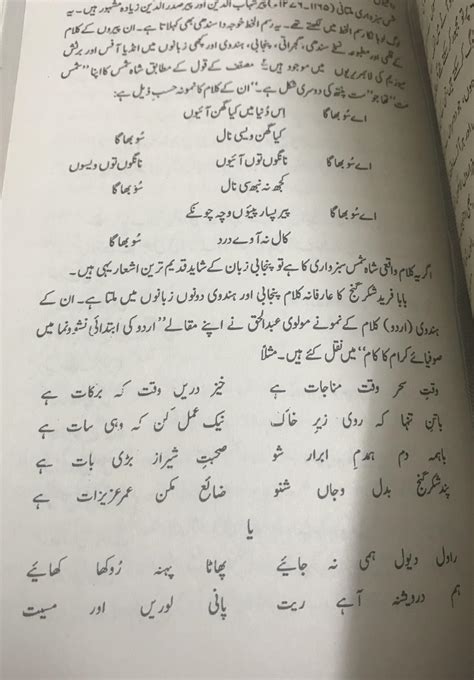 شمس سبزواری ملتانی (۱۱۶۵-۱۲۷۶ء) پیر شہاب الدین اور پیر صدر الدین زیادہ مشہور ہیں۔ یہ
رسم الخط میں لکھتے تھے۔ یہ رسم الخط خوجہ واسندھی بھی کہلاتا ہے۔ ان پیروں کے کلام
کے قلمی اور مطبوعہ نسخے سندھی، گجراتی، پنجابی، ہندوی اور کچھی زبانوں میں انڈیا آفس اور برٹش
میوزیم کی لائبریریوں میں موجود ہیں۔ مصنف کے قول کے مطابق شاہ شمس کا اپنا "شمس
مت" تھا جو "ست پنتھ کی دوسری شکل ہے۔" ان کے کلام کا نمونہ حسب ذیل ہے:
اے سُو بھاگا اِس دُنیا میں کیا گھن آئیوں
کیا گھن ویسی نال سُو بھاگا
اے سُو بھاگا نانگوں توں آئیوں نانگوں توں ویسوں
کجھ نہ نبھ سی نال سُو بھاگا
اے سُو بھاگا پیر پسار پیئوں وچہ چونکے
کال نہ آوے درد سُو بھاگا
اگر یہ کلام واقعی شاہ شمس سبزواری کا ہے تو پنجابی زبان کے شاید قدیم ترین اشعار یہی ہیں۔
بابا فرید شکر گنج کا عارفانہ کلام پنجابی اور ہندوی دونوں زبانوں میں ملتا ہے۔ ان کے
ہندوی (اردو) کلام کے نمونے مولوی عبدالحق نے اپنے مقالے "اردو کی ابتدائی نشوونما میں
صوفیائے کرام کا کام" میں نقل کئے ہیں۔ مثلاً
وقتِ سحر وقت مناجات ہے خیز دریں وقت کہ برکات ہے
باتن تنہا کہ روی زیرِ خاک نیک عمل کن کہ وہی سات ہے
باہمہ دم ہمدمِ ابرار شو صحبتِ شیراز بڑی بات ہے
پند شکر گنج بدل و جاں شنو ضائع مکن عمر عزیزات ہے
یا
راول دیول ہمی نہ جائیے پھاٹا پہنہ رُوکھا کھائیے
ہم درویشنہ آہے ریت پانی لوریں اور مسیت